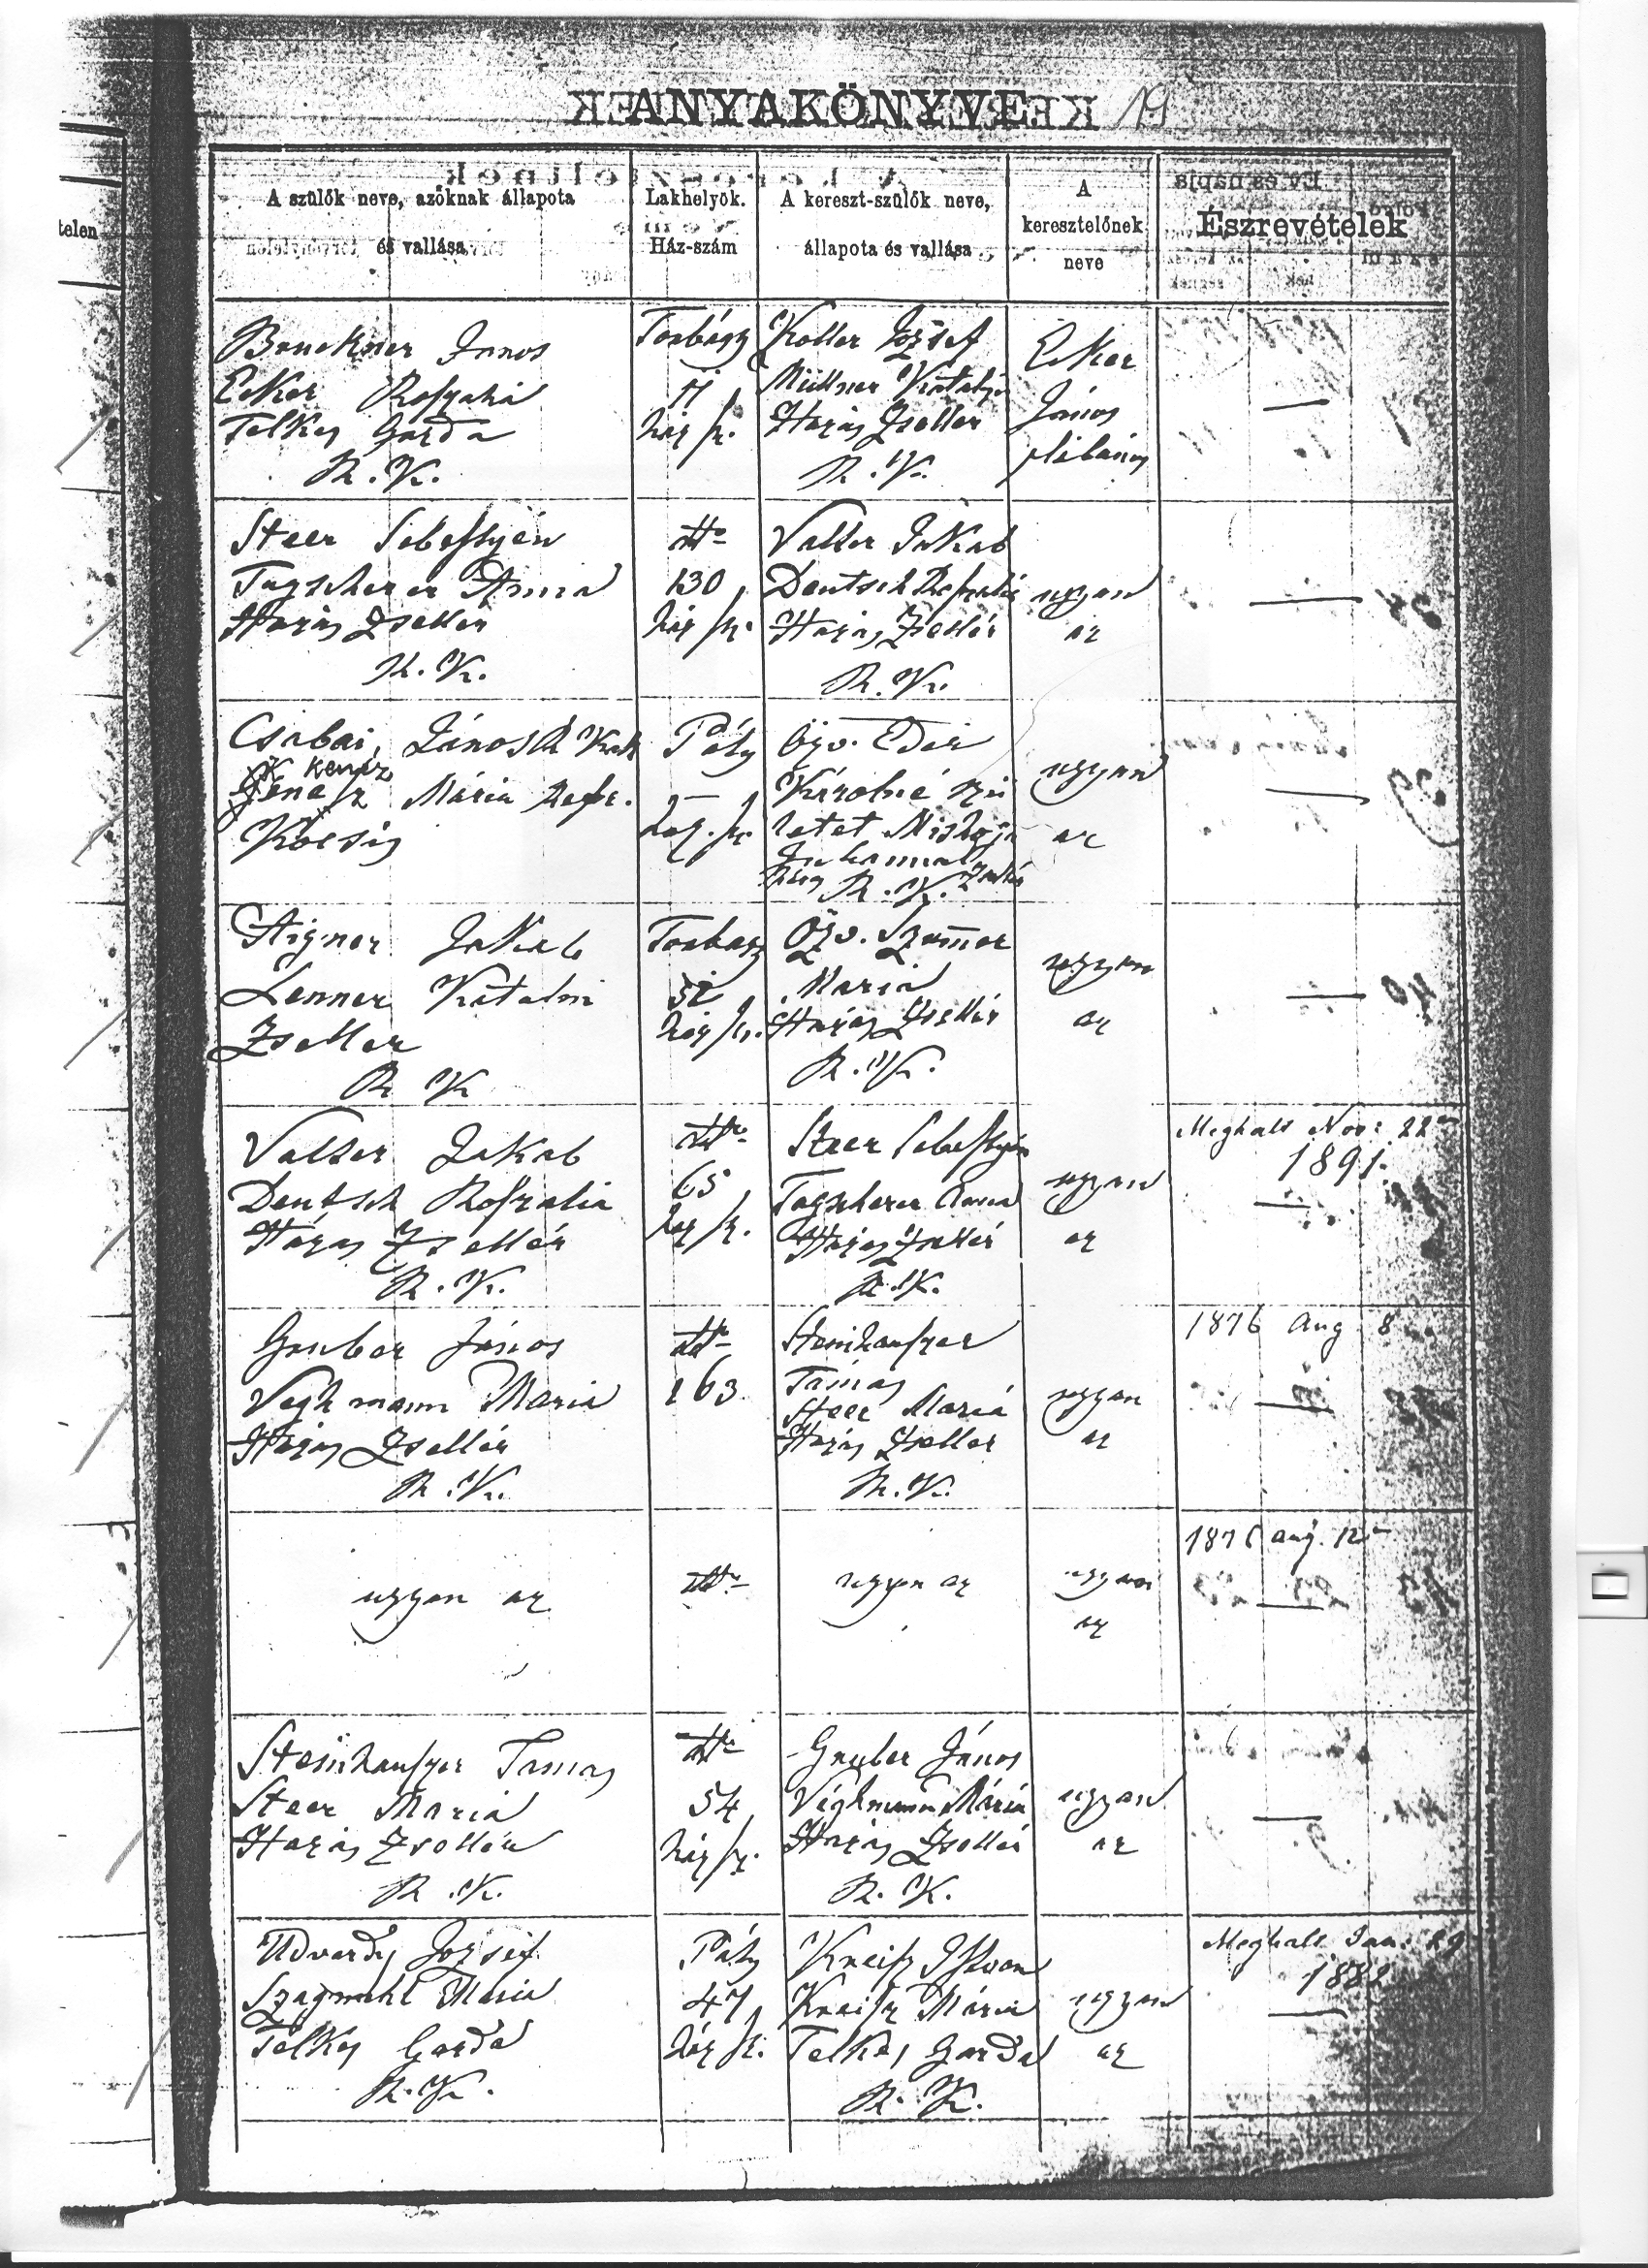 ANYAKÖNYVE
19
telen
A szülők neve, azoknak állapota
és vallása
Lakhelyök.
Ház-szám
A kereszt-szülők neve,
állapota és vallása
A
keresztelőnek
neve
Észrevételek
Bruckner Janos
Ecker
Telkes Gazda
R. K.
Torbágy
ház sz.
Koller József
Müllner Katalin
Házas Zseller
R. K.
Ecker
János
plébános
Steer Sebestyén
Tagscherer Anna
Házas Zsellér
R. K.
dtto
130
ház sz.
Valter Jakab
Deutsch Roszalia
Házas Zsellér
R. K.
ugyan
az
Csabai János R. Kath
Kenéz
Mária Refor.
Kocsis
Páty
—
ház. sz.
Özv. Eder
Károlné szü
letet
R. K. Zsellér
ugyan
az
Aigner Jakab
Lenner Katalin
Zseller
R K
Torbágy
52
ház sz.
Özv. Szammer
Maria
Házas Zsellér
R. K.
ugyan
az
Valter Jakab
Deutsch Roszalia
Házas Zsellér
R. K.
dtto
65
ház sz.
Steer Sebestyén
Tagscherer Anna
Házas Zsellér
R. K.
ugyan
az
Meghalt Nov. 22
1891.
Gruber János
Veghmann Maria
Házas Zsellér
R. K.
dtto
163
Steinhauszer
Tamás
Steer Mariá
Házas Zseller
R. K.
ugyan
az
1876 Aug 8
ugyan az
dtto
ugyan az
ugyan
az
1876 aug. 12
Steinhauszer Tamas
Steer Maria
Házas Zsellér
R. K.
dtto
54
ház sz.
Gruber János
Véghmann Mária
Házas Zsellér
R. K.
ugyan
az
Udvardy József
Maria
Telkes Gazda
R. K.
Páty
47
ház sz.
Kneisz Istvan
Kneisz Mária
Telkes Gazda
R. K.
ugyan
az
Meghalt Jan. 29